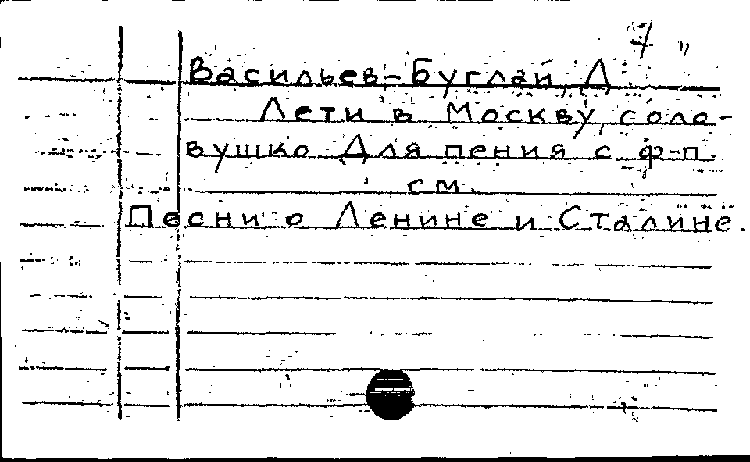 7 "
Васильев-Буглай, Д
Лети в Москву, соло-
вушко Для пения с ф-п.
см.
Песни о Ленине и Сталине.